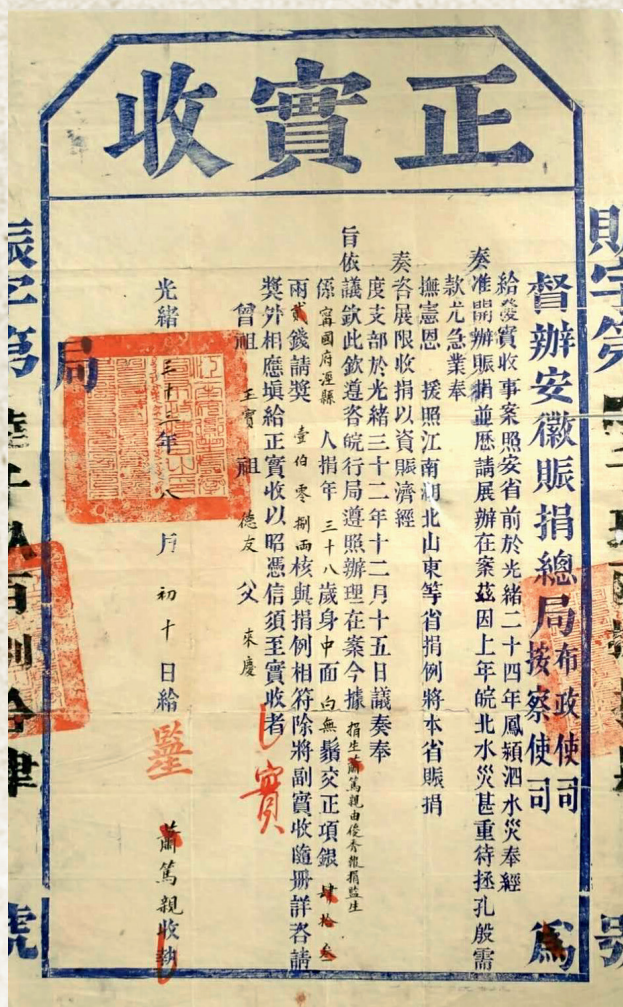 正實收
督辦安徽賑捐總局布政使司按察使司爲
給發實收事案照安省前於光緒二十四年鳳潁泗水災奉經
奏准開辦賑捐並歷請展辦在案茲因上年皖北水災甚重待拯孔殷需
款尤急業奉
撫憲恩 援照江南湖北山東等省捐例將本省賑捐
奏咨展限收捐以資賑濟經
度支部於光緒三十二年十二月十五日議奏奉
旨依議欽此欽遵咨皖行局遵照辦理在案今據 捐生蕭篤親由俊秀報捐監生
係 寧國府涇縣 人捐年 三十八 歲身 中 面 白無 鬚交正項銀 肆拾叁
兩 貳 錢請獎 壹伯零捌兩 核與捐例相符除將副實收隨册詳咨請
獎外相應填給正實收以昭憑信須至實收者
曾祖 玉寶 祖 德友 父 來慶
實
光緒三十三年八月初十日給 監生 蕭篤親收執
局
賑字第
號